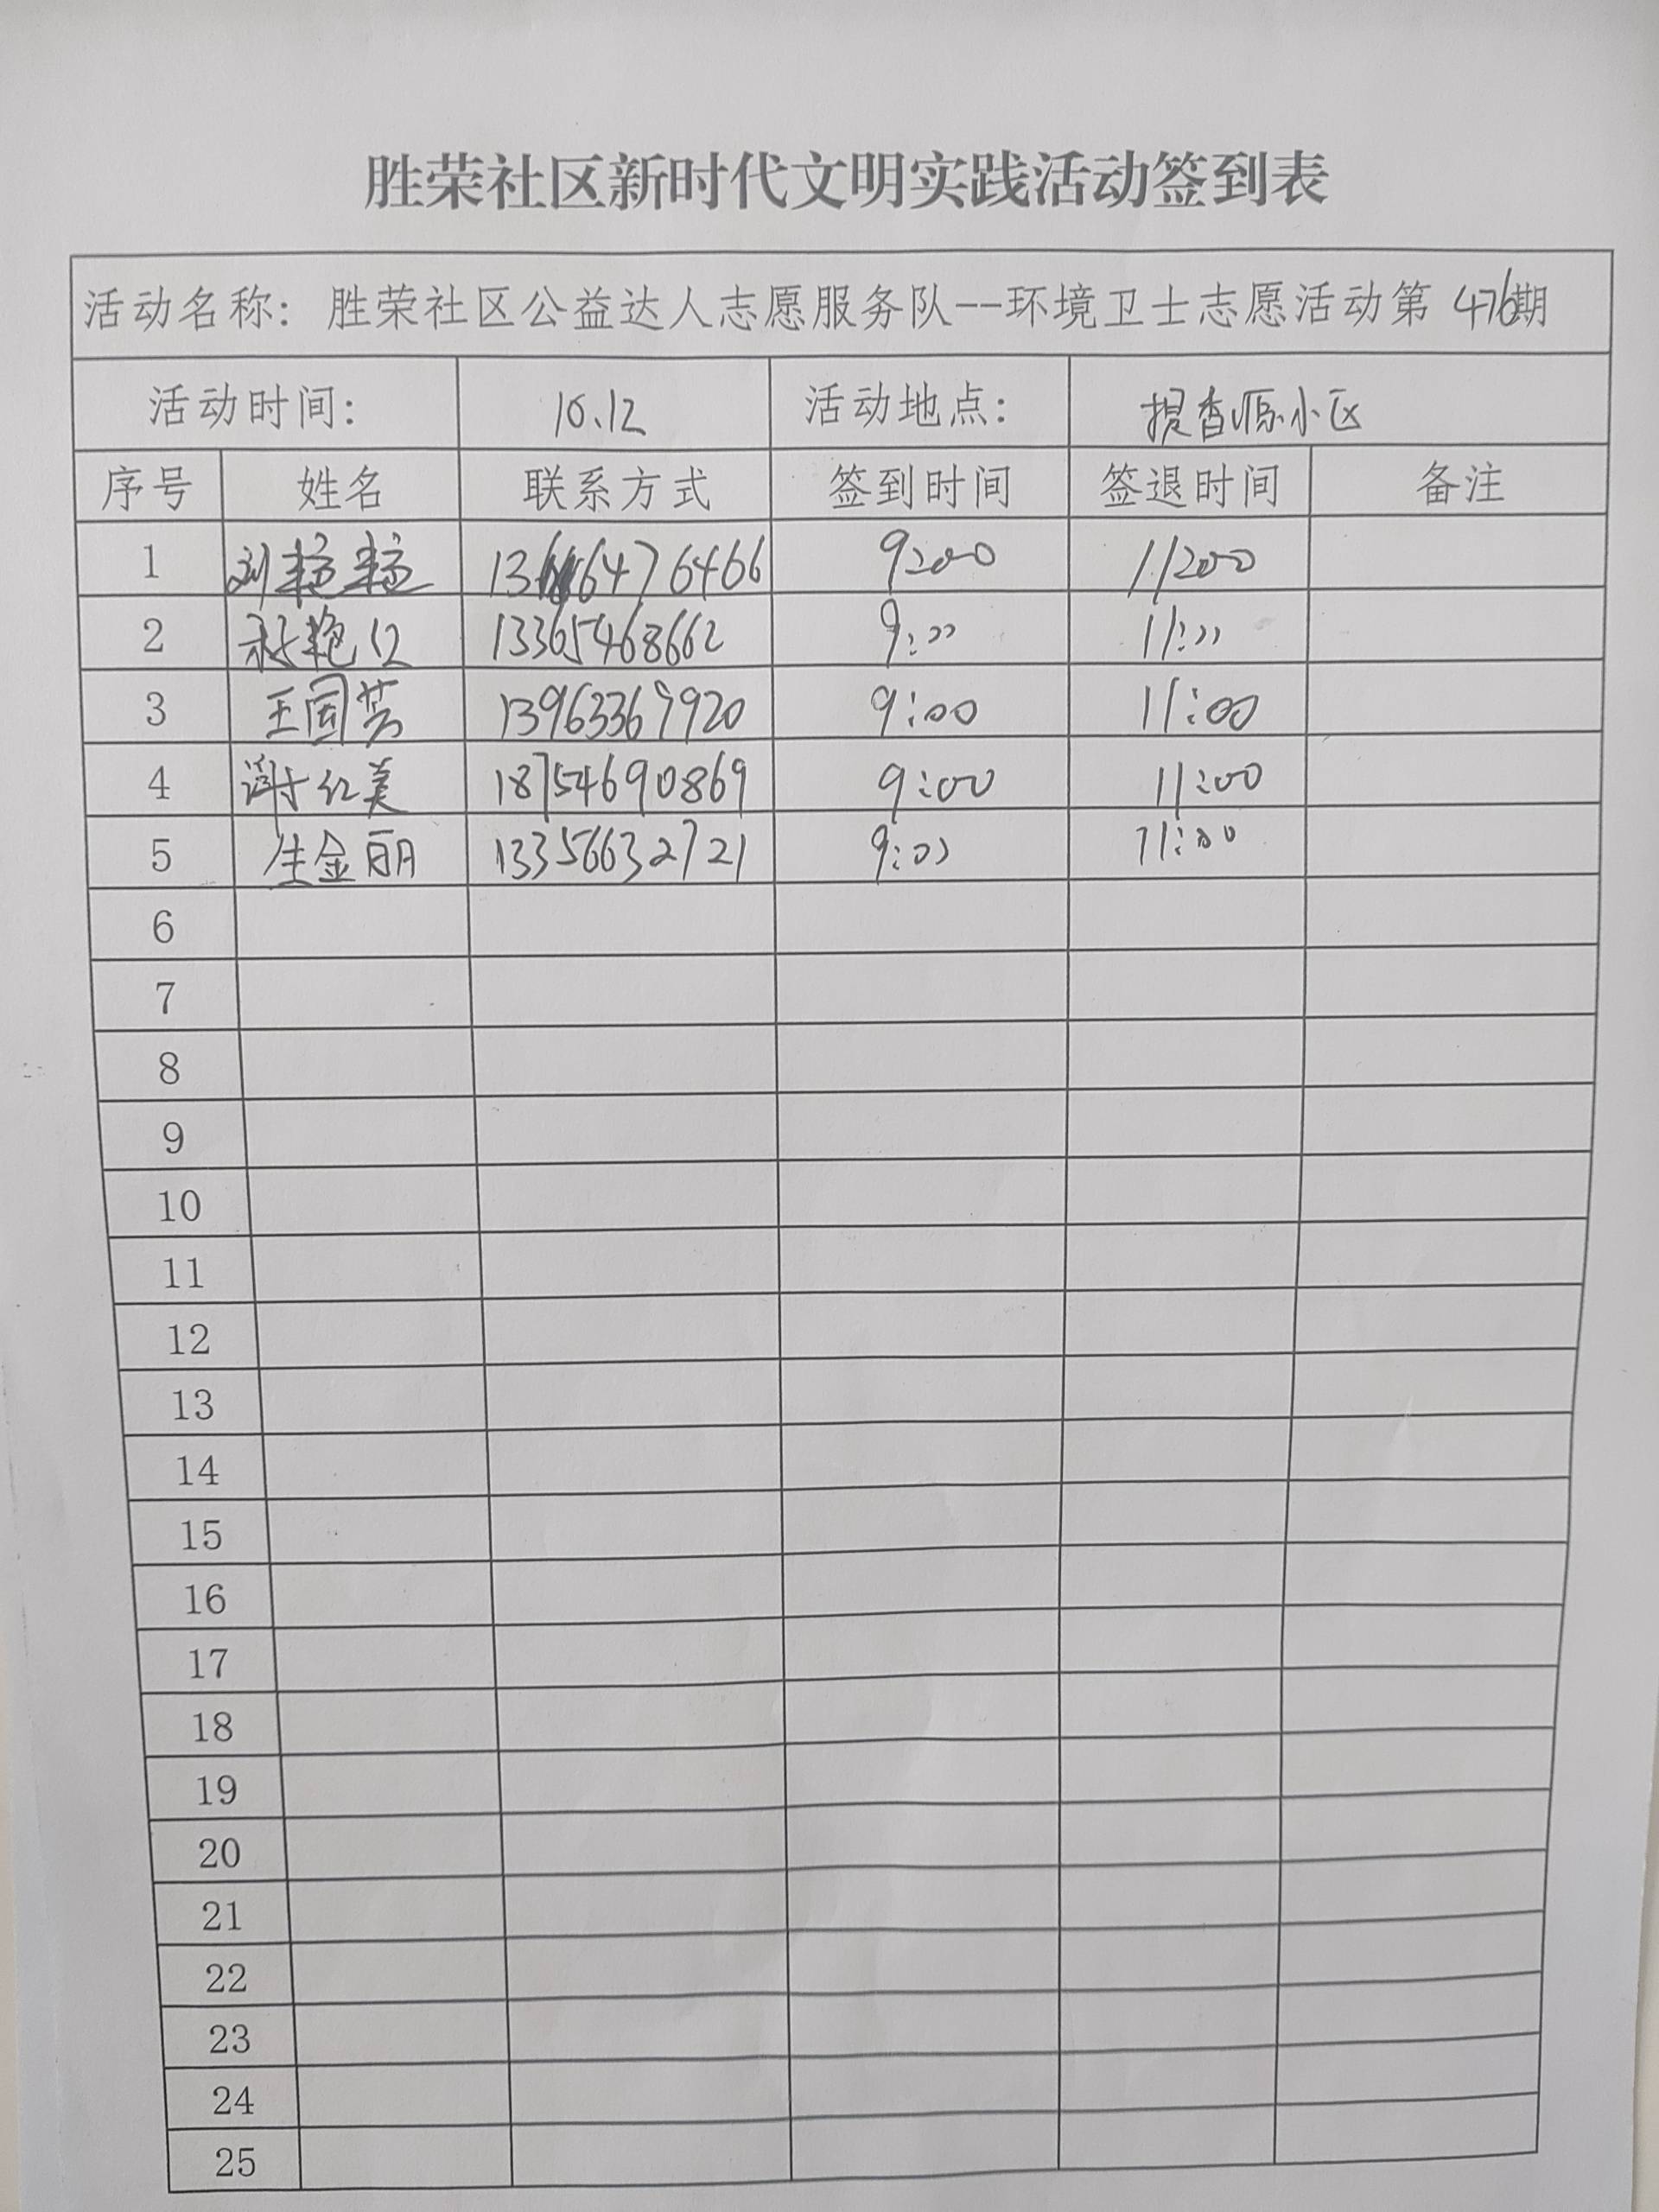 胜荣社区新时代文明实践活动签到表
活动名称：胜荣社区公益达人志愿服务队--环境卫士志愿活动第 476期
活动时间： 10.12 活动地点： 提香源小区
序号 姓名 联系方式 签到时间 签退时间 备注
1 刘 9:00 11:00
2 13365468662 9:00 11:00
3 王国芳 13963369920 9:00 11:00
4 谢红美 18754690869 9:00 11:00
5 生金丽 13356632721 9:00 11:00
6
7
8
9
10
11
12
13
14
15
16
17
18
19
20
21
22
23
24
25